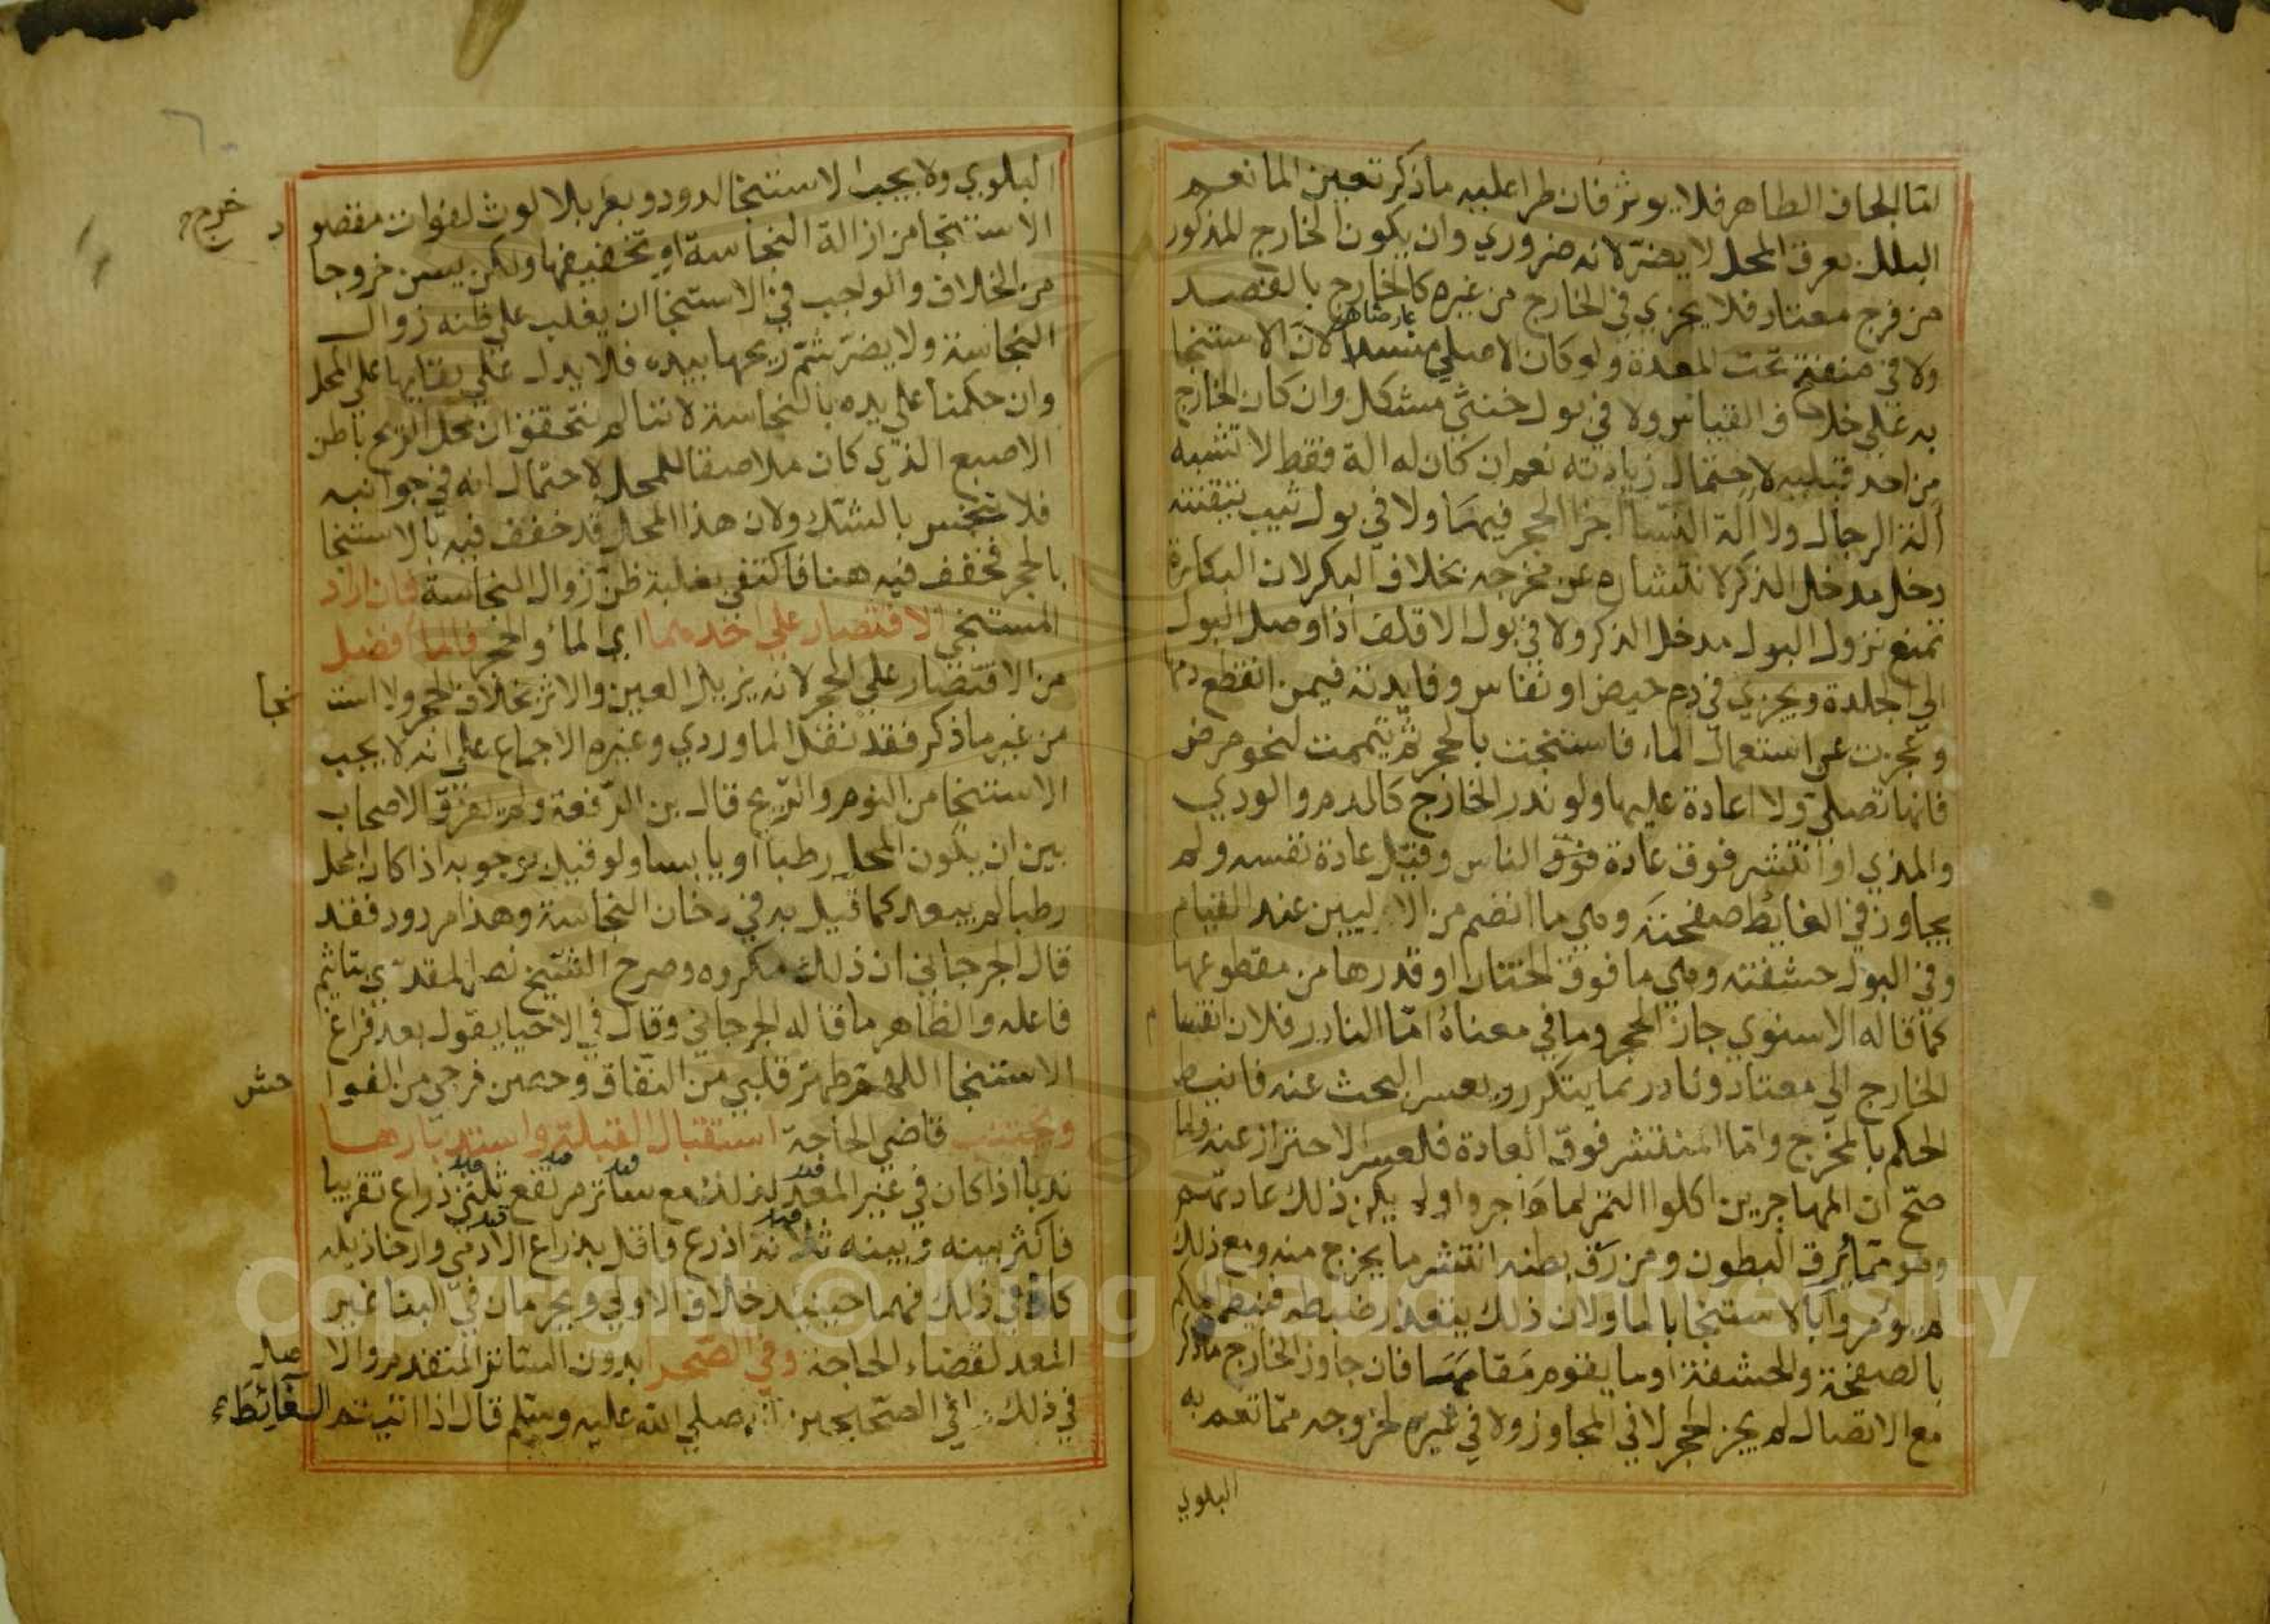 لقا الجاف الطاهر فلا يوثر فان طرا عليه ما ذكر تعين الما نعم
البلل بعرق المحل لا يضر لانه ضروري وان يكون الخارج المذكور
من فرج معتاد فلا يجزي في الخارج من غيره كالخارج بالفصد
ولا في منفتح تحت المعدة ولو كان الاصلي منسدا عارضا لان الاستنجا
به على خلاف القياس ولا في بول خنثي مشكل وان كان الخارج
من احد قبليه لاحتمال زيادته نعم ان كان له الة فقط لا تشبه
الة الرجال ولا الة النسا اجزا الحجر فيهما ولا في بول ثيب تيقنته
دخل مدخل الذكر لانتشاره عن مخرجه بخلاف البكر لان البكارة
تمنع نزول البول مدخل الذكر ولا في بول الاقلف اذا وصل البول
الي الجلدة ويجزي في دم حيض او نفاس وفايدته فيمن انقطع دمها
وعجزت عن استعمال الماء فاستنجت بالحجر ثم تيممت لنحو مرض
فانها تصلي ولا اعادة عليها ولو ندر الخارج كالدم والودي
والمذي او انتشر فوق عادة فوق الناس وقيل عادة نفسه ولم
يجاوز في الغايط صفحته وهي ما انضم من الاليين عند القيام
وفي البول حشفته وهي ما فوق الختان او قدرها من مقطوعها
كما قاله الاسنوي جاز الحجر وما في معناه اما النادر فلان انقسا م
الخارج الي معتاد ونادر مما يتكرر ويعسر البحث عنه فانيط
الحكم بالمخرج واما المنتشر فوق العادة فلعسر الاحتراز عنه ولما
صح ان المهاجرين اكلوا التمر لما هاجروا ولم يكن ذلك عادتهم
وهو مما يرق البطون ومن رق بطنه انتشر ما يخرج منه ومع ذلك
لم يومروا بالاستنجا بالما ولان ذلك يتعذر ضبطه فنيط الحكم
بالصفحة والحشفة او ما يقوم مقامهما فان جاوز الخارج ما ذكر
مع الاتصال لم يجز الحجر لا في المجاوز ولا في غيره لخروجه مما تعم به
البلوي
البلوي ولا يجب الاستنجا لدود وبعر بلا لوث لفوات مقصو د
الاستنجا من ازالة النجاسة او تخفيفها ولكن يسن خروجا خروج
من الخلاف والواجب في الاستنجا ان يغلب علي ظنه زوال
النجاسة ولا يضر شم ريحها بيده فلا يدل علي بقايها علي المحل
وان حكمنا علي يده بالنجاسة لاننا لم نتحقق ان محل الريح باطن
الاصبع الذي كان ملاصقا للمحل لاحتمال انه في جوانبه
فلا تنجس بالشك ولان هذا المحل قد خفف فيه بالاستنجا
بالحجر فخفف فيه هنا فاكتفي بغلبة ظن زوال النجاسة فان اراد
المستنجي الاقتصار علي احدهما اي الماء والحجر فالما افضل
من الاقتصار علي الحجر لانه يزيل العين والاثر بخلاف الحجر ولا است نجا
من غير ما ذكر فقد نقل الماوردي وغيره الاجماع علي انه لا يجب
الاستنجا من النوم والريح قال بن الرفعة ولم يفرق الاصحاب
بين ان يكون المحل رطبا او يابسا ولو قيل بوجوبه اذا كان المحل
رطبا لم يبعد كما قيل به في دخان النجاسة وهذا مردود فقد
قال الجرجاني ان ذلك مكروه وصرح الشيخ نصر المقدسي بتاثيم
فاعله والظاهر ما قاله الجرجاني وقال في الاحيا يقول بعد فراغ
الاستنجا اللهم طهر قلبي من النفاق وحصن فرجي من الفوا حش
ويجتنب قاضي الحاجة استقبال القبلة واستدبارها
ندبا اذا كان في غير المعد لذلك مع ساتر مرتفع ثلثي ذراع تقريبا
قيد قيد قيد قيد
فاكثر بينه وبينه ثلاثة اذرع فاقل بذراع الادمي وارخا ذيله
قيد قيد
كاف في ذلك فهما حينيذ خلاف الاولي ويحرمان في البنا غير
المعد لقضاء الحاجة وفي الصحرا بدون الساتر المتقدم والا صل
في ذلك ما في الصحيحين انه صلي الله عليه وسلم قال اذا اتيتم الغائط